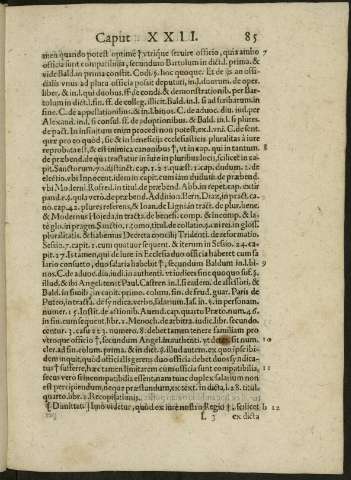 Caput XXII. 85
men quando potest optime †, vtrique seruire officio, quia ambo 7
officia sunt compatibilia, secundum Bartolum in dict. l. prima. &
vide Bald. in prima constit. Codi. §. hoc quoque. Et de iis an offi-
cialis vnus ad plura officia posset deputari, in l. duorum. de oper.
liber. & in l. qui duobus. ff. de condi. & demonstrationib. per Bar-
tolum in dict. l. fin. ff. de colleg. illicit. Bald. in l. si ad scribatum in
fine. C. de appellationibus. & in l. binos. C. de aduoc. diu. iud. per
Alexand. in l. si consul. ff. de adoptionibus. & Bald. in l. si plures.
de pact. In infinitum enim procedi non potest, ex l. vni. C. de sent.
quæ pro eo quod, sic & in beneficijs ecclesiasticis pluralitas à iure
reprobata est, & est inimica canonibus †, vt in cap. qui in tantum. 8
de præbend. de qua tractatur in iure in pluribus locis, scilicet in ca-
pit. Sanctorum. 70. distinct. cap. 1. 21. quæst. 1. cap. dudum. 2. de
electio. vbi Innocent. idem in capit. cum iam dudum. de præbend.
vbi Moderni. Rofred. in titul. de præbend. Abb. in repet. cap. extir
pand. §. qui vero. de præbend. Addition. Bern. Diaz, in pract. ca-
no. cap. 42. plures referens, & Ioan. de Lignã in tract. de plur. bene.
& Modernus Hojeda, in tracta. de benefi. comp. & incomp. & la-
tè glo. in pragm. Sanctio. r. como, titul. de collatio. §. nirei. in gloss.
pluralitatis. & habemus Decreta concilij Tridenti. de reformatio.
Sessio. 7. capit. 2. cum quatuor sequent. & iterum in Sessio. 24. ca-
pit. 17. si tamen, qui de iure in Ecclesia duo officia haberet cum sa
lario consueto, duo salaria habebit †, secundum Baldum in l. bi- 9
nos. C. de aduoc. diu. iudi. in authenti. vt iudices sine quoquo suf. §.
illud. & ibi Angel. tenet Paul. Castren. in l. si eadem. de assessori. &
Bald. in suosti. in capit. primo. colum. fin. de feud. guar. Paris de
Puteo, in tracta. de syndica. verbo, salarium. Ias. in §. in personam.
numer. 15. Instit. de actionib. Auend. cap. quarto Præto. num. 46.
in fin. cum sequent. libr. 2. Menoch. de arbitra. iudic. libr. secundo.
centur. 3. casu 223. numero. 8. debet tamen tenere familiam pro
vtroque officio †, secundum Angel. in authenti. vt defen. fi. num. 10
cler. ad fin. colum. prima. & in dict. §. illud. autem, ex quo ipse ibi-
dem inquit, quod officialis gerens duo officia debet duos syndica-
tus † sufferre, hæc tamen limitarem cum officia sunt compatibilia, 11
secus vero si incompatibilia essent, nam tunc duplex salarium non
est percipiendum, neque præstandum, ex text. in dicta. l. 28. titul.
quarto. libr. 2. Recopilationis.
¶ Dimittatis hoc videtur, quod ex iure nostro Regij †, scilicet b 12
L 3 ex dicta